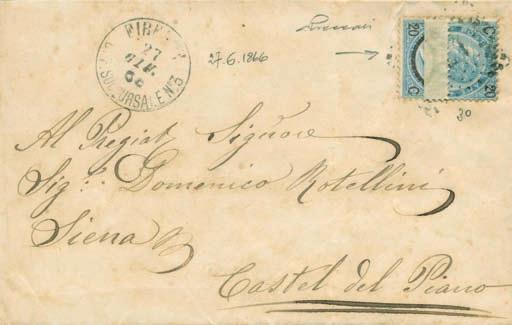 FIRENZE
27
GIU.
66
SUCCURSALE N.5
27.6.1866
20
C
C
20
30
Al Pregiat Signore
Sig:: Domenico Rotellini
Siena
Castel del Piano